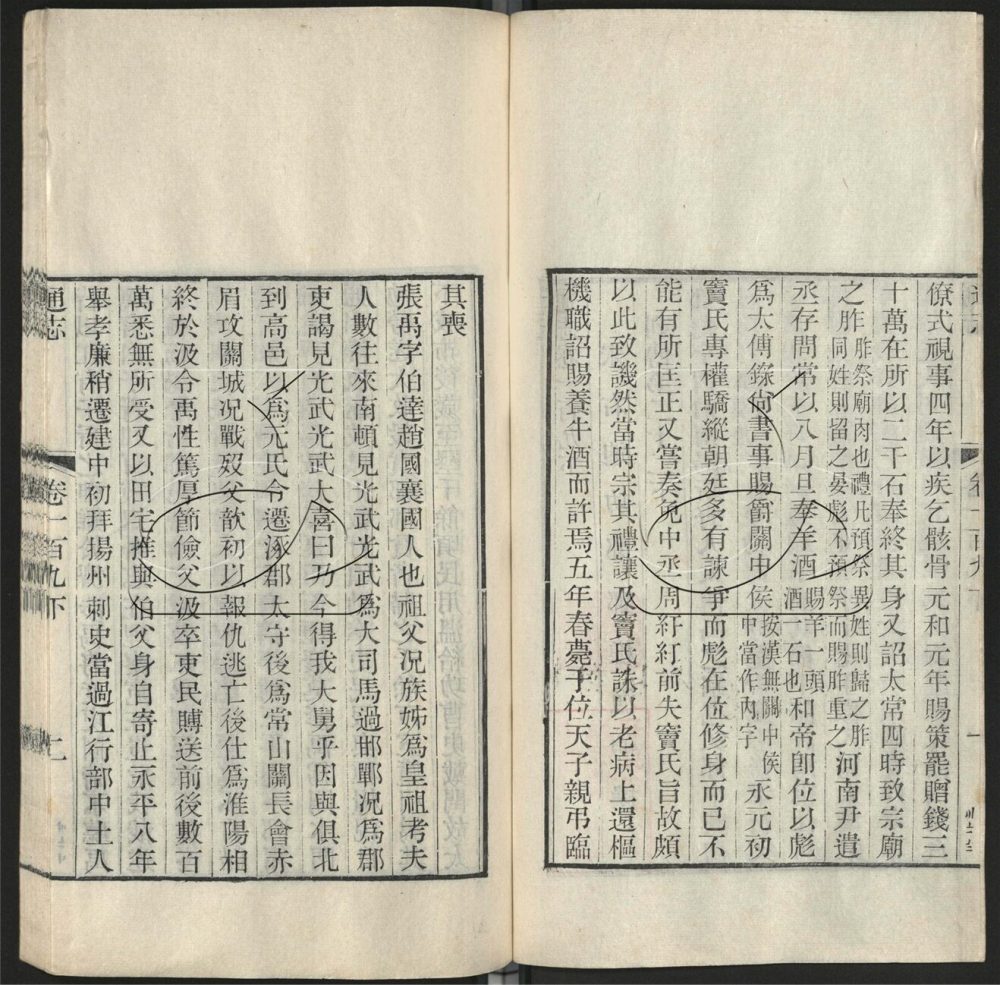 僚式視事四年以疾乞骸骨元和元年賜策罷贈錢三
十萬在所以二千石奉終其身又詔太常四時致宗廟
之胙胙祭廟肉也禮凡預祭異姓則歸之胙同姓則留之晏彪不預祭而賜胙重之河南尹遺
丞存問常以八月旦奉羊酒賜羊一頭酒一石也和帝卽位以彪
爲太傅錄尚書事賜爵關中侯按漢無關中侯中當作內字永元初
竇氏專權驕縱朝廷多有諫爭而彪在位修身而已不
能有所匡正又嘗奏免中丞周紆紆前失竇氏旨故頗
以此致譏然當時宗其禮讓及竇氏誅以老病上還樞
機職詔賜養牛酒而許焉五年春薨于位天子親弔臨
其喪
張禹字伯達趙國襄國人也祖父況族姊爲皇祖考夫
人數往來南頓見光武光武爲大司馬過邯鄲況爲郡
吏謁見光武光武大喜曰乃今得我大舅乎因與俱北
到高邑以爲元氏令遷涿郡太守後爲常山關長會赤
眉攻關城況戰歿父歆初以報仇逃亡後仕爲淮陽相
終於汲令禹性篤厚節儉父汲卒吏民賻送前後數百
萬悉無所受又以田宅推與伯父身自寄止永平八年
舉孝廉稍遷建中初拜揚州刺史當過江行部中土人
通志
卷一百九下